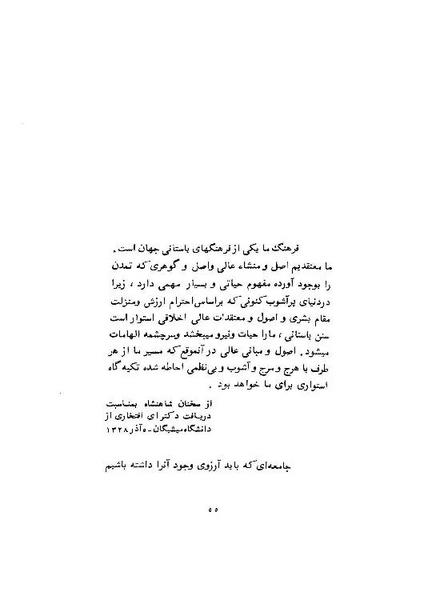 فرهنگ ما یکی از فرهنگهای باستانی جهان است .
ما معتقدیم اصل و منشاء عالی واصلی و گوهری که تمدن
را بوجود آورده مفهوم حیاتی و بسیار مهمی دارد ، زیرا
دردنیای پرآشوب کنونی که براساس احترام ارزش ومنزلت
مقام بشری و اصول و معتقدات عالی اخلاقی استوار است
سنن باستانی ، مارا حیات ونیرو میبخشد وسرچشمه الهامات
میشود . اصول و مبانی عالی در آنموقع که مسیر ما از هر
طرف با هرج و مرج و آشوب و بی‌نظمی احاطه شده تکیه گاه
استواری برای ما خواهد بود .
از سخنان شاهنشاه بمناسبت
دریافت دکترای افتخاری از
دانشگاه میشیگان - ۵ آذر ۱۳۲۸
جامعه‌ای که باید آرزوی وجود آنرا داشته باشیم
۵۵